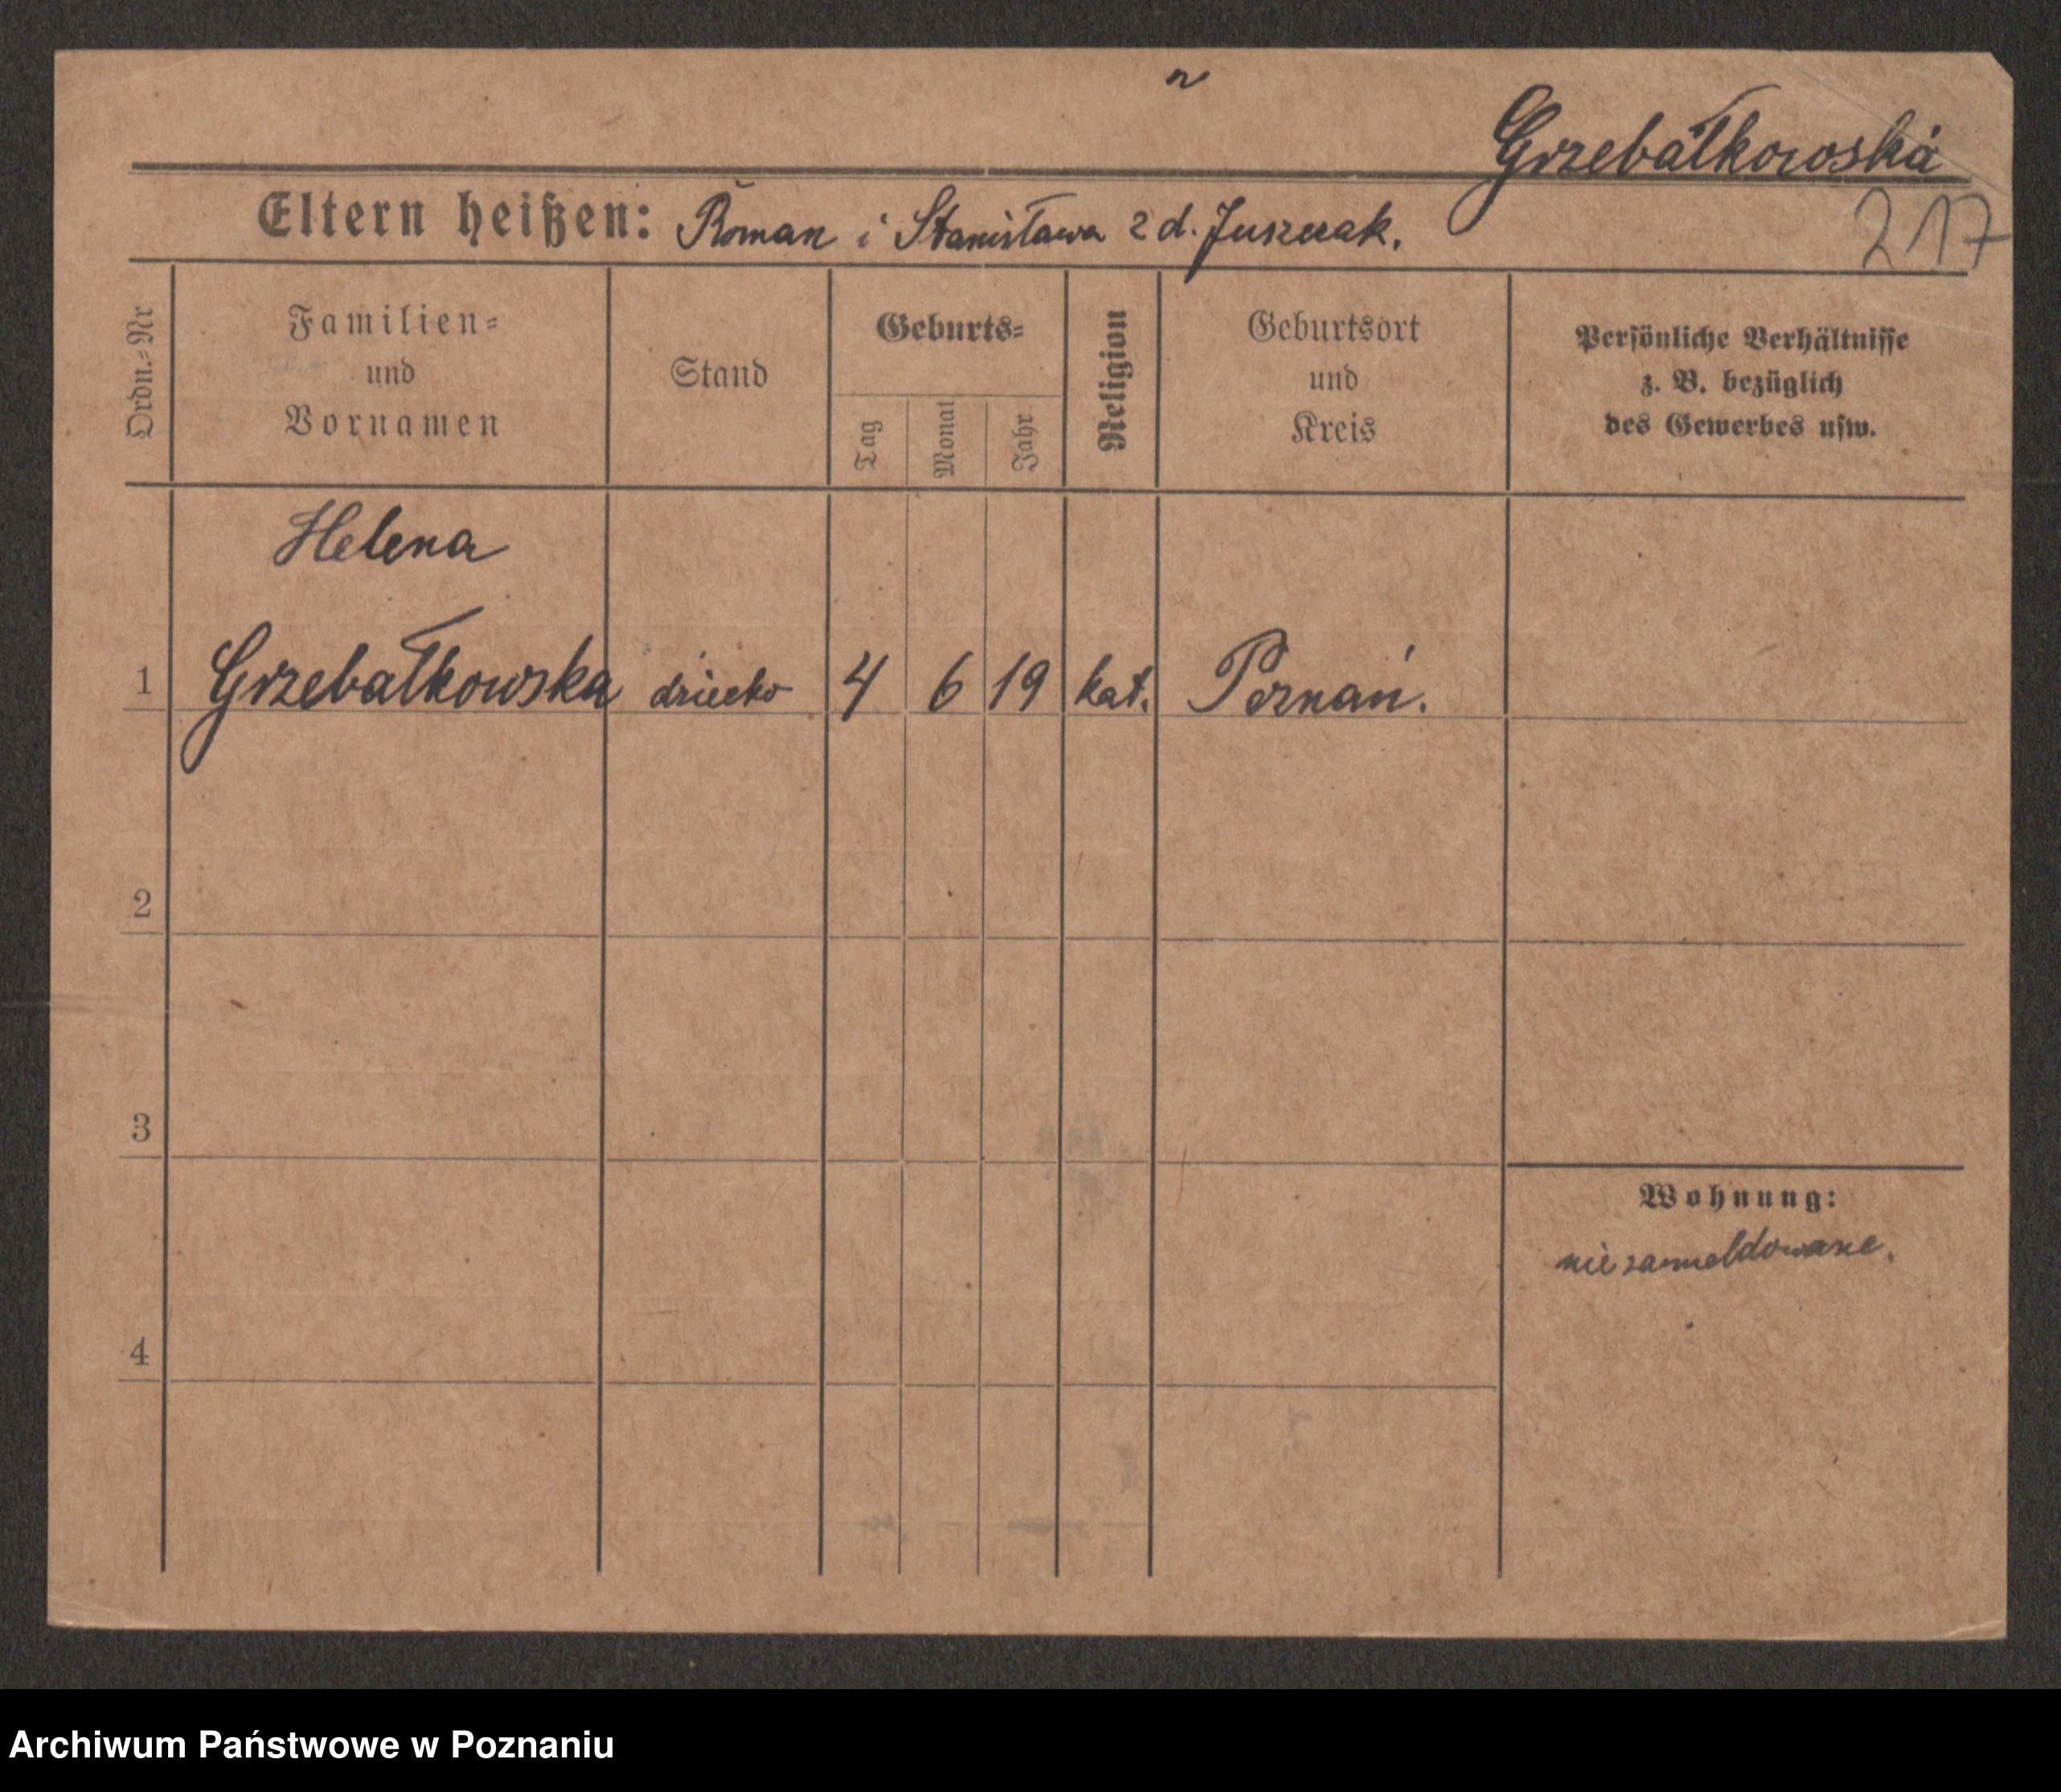 Grzebałkowska
Eltern heißen: Roman i Stanisława z d. Juszczak.
217
Ordn.=Nr
Familien=
und
Vornamen
Stand
Geburts=
Tag
Monat
Jahr
Religion
Geburtsort
und
Kreis
Persönliche Verhältnisse
z. B. bezüglich
des Gewerbes usw.
Helena
1 Grzebałkowska dziecko 4 6 19 kat. Poznań.
2
3
Wohnung:
nie zameldowane.
4
Archiwum Państwowe w Poznaniu